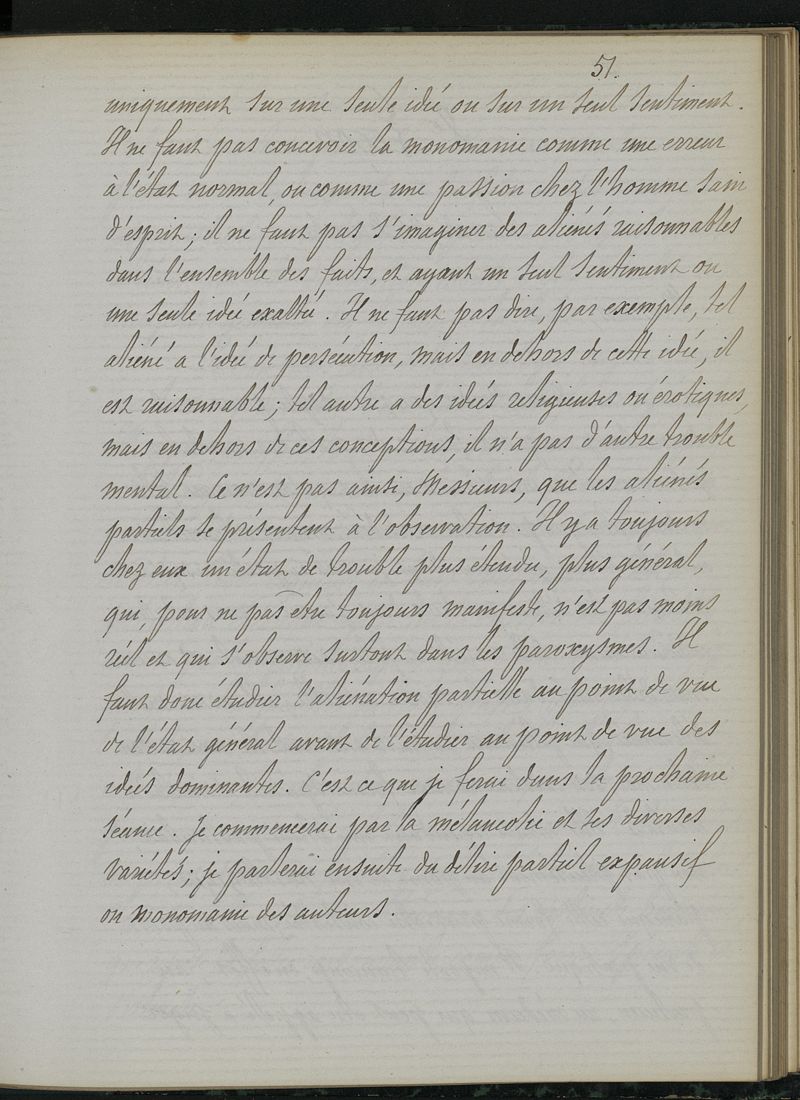 51.
uniquement sur une seule idée ou sur un seul sentiment.
Il ne faut pas concevoir la monomanie comme une erreur
à l'état normal, ou comme une passion chez l'homme sain
d'esprit ; il ne faut pas s'imaginer des aliénés raisonnables
dans l'ensemble des faits, et ayant un seul sentiment ou
une seule idée exaltée. Il ne faut pas dire, par exemple, tel
aliéné a l'idée de persécution, mais en dehors de cette idée, il
est raisonnable ; tel autre a des idées religieuses ou érotiques,
mais en dehors de ces conceptions, il n'a pas d'autre trouble
mental. Ce n'est pas ainsi, Messieurs, que les aliénés
partiels se présentent à l'observation. Il y a toujours
chez eux un état de trouble plus étendu, plus général,
qui, pour ne pas être toujours manifeste, n'est pas moins
réel et qui s'observe surtout dans les paroxysmes. Il
faut donc étudier l'aliénation partielle au point de vue
de l'état général avant de l'étudier au point de vue des
idées dominantes. C'est ce que je ferai dans la prochaine
séance. Je commencerai par la mélancolie et ses diverses
variétés ; je parlerai ensuite du délire partiel expansif
ou monomanie des auteurs.